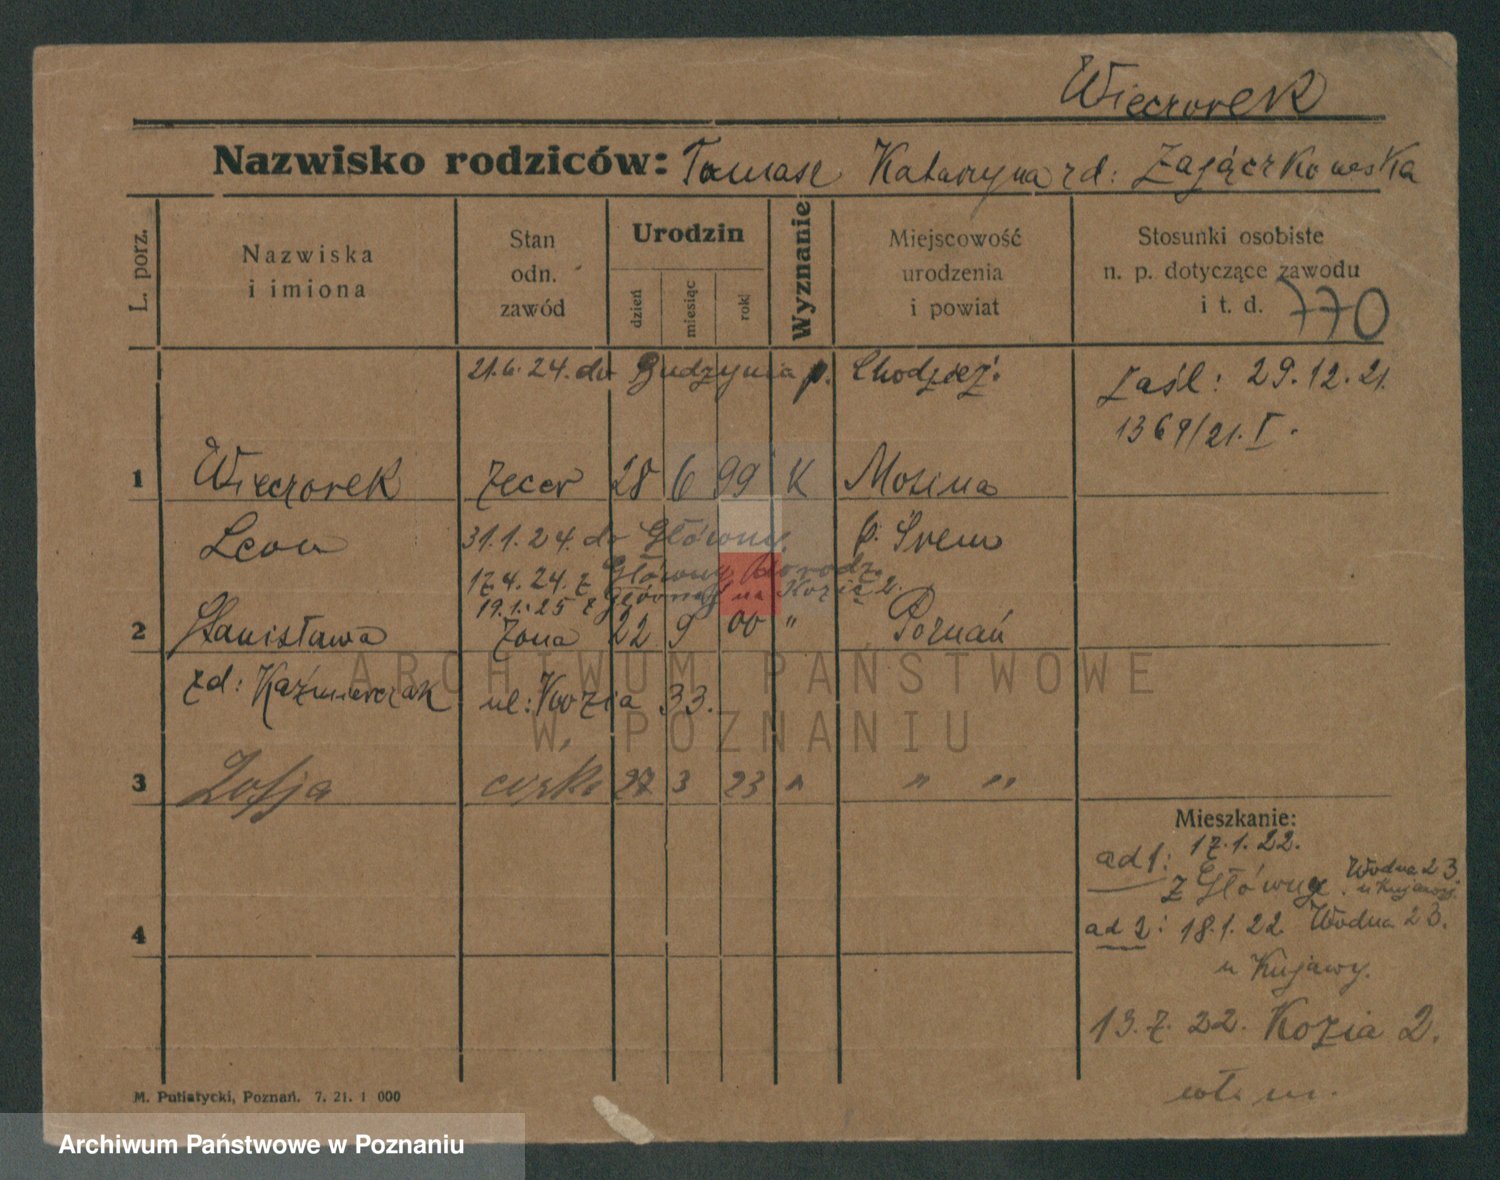 Wieczorek
Nazwisko rodziców: Tomasz Katarzyna zd: Zajączkowska
L. porz.
Nazwiska
i imiona
Stan
odn.
zawód
Urodzin
dzień
miesiąc
rok
Wyznanie
Miejscowość
urodzenia
i powiat
Stosunki osobiste
n. p. dotyczące zawodu
i t. d. 770
21.6.24. do Budzynia p. Chodzież.
zaśl: 29.12.21.
1369/21. I.
1 Wieczorek zecer 28 6 99 K Mosina
Leon 31.1.24. do Główny. p. Śrem
17.4.24. z Główny
19.1.25 z Główny na Kozia 2.
2 Stanisława żona 22 9 00 " Poznań
zd: Kaźmierczak ul: Kozia 33.
3 Zofja córka 27 3 23 " " "
Mieszkanie:
ad 1: 17.1.22.
z Główny. Wodna 23.
u Kujawy.
ad 2: 18.1.22. Wodna 23.
u Kujawy.
13.7.22. Kozia 2.
4
M. Putiatycki, Poznań. 7. 21. 1 000
ARCHIWUM PAŃSTWOWE
W POZNANIU
Archiwum Państwowe w Poznaniu